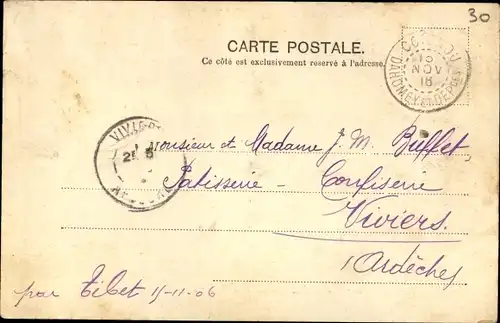 30
CARTE POSTALE.
Ce côté est exclusivement reservé à l'adresse.
COTONOU
15
NOV
DAHOMEY ET DEPCES
VIVIERS
Monsieur et Madame J. M. Buffet,
Patisserie – Confiserie
Viviers
(Ardèche)
par Tibet 15-11-06